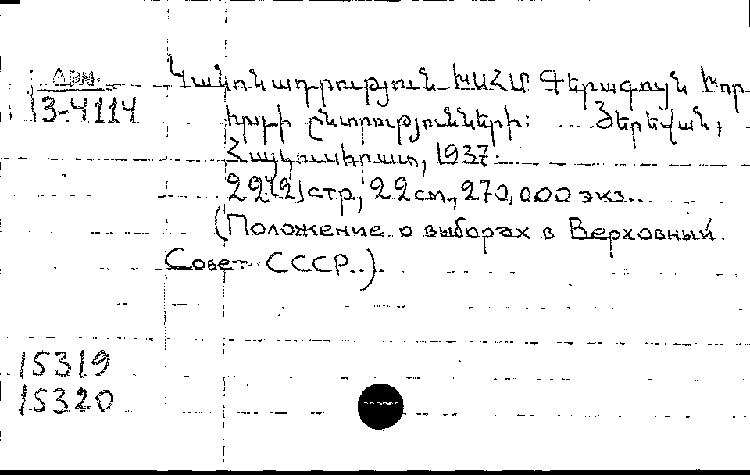 Арм.
3-4114
Կանոնադրություն ԽՍՀՄ Գերագույն Խոր-
հրդի ընտրությունների: Յերեվան,
Հայկուսհրատ, 1937.
22(2)стр, 22см., 270,000 экз..
(Положение о выборах в Верховный
Совет СССР..).
15319
15320